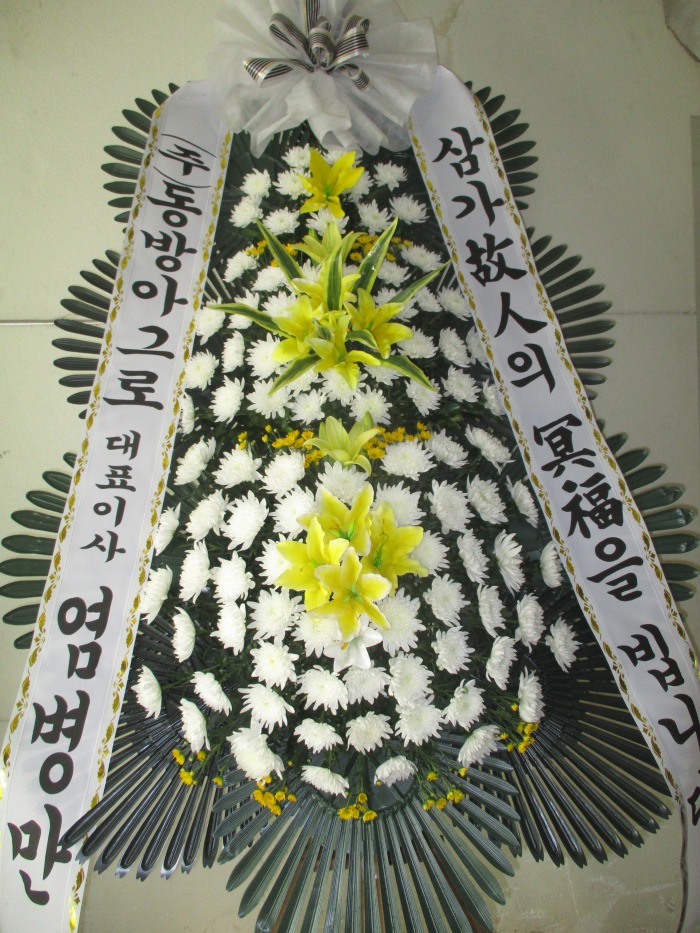 (주)동방아그로 대표이사 염병만
삼가故人의 冥福을 빕니다